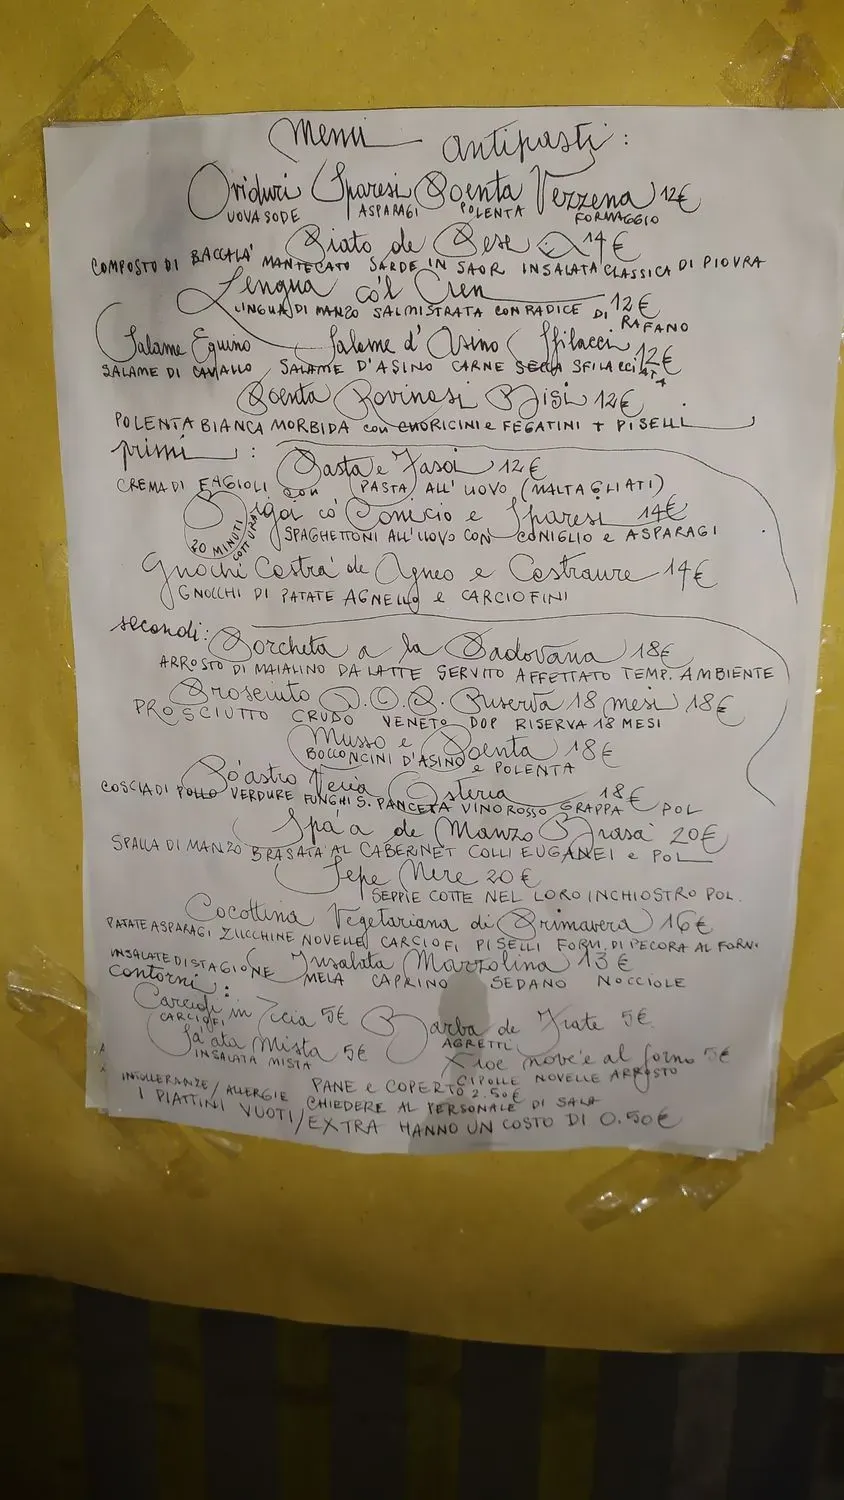 Menu antipasti:
Oviduri Sparesi Poenta Vezzena 12€
UOVA SODE ASPARAGI POLENTA FORMAGGIO
Piato de Pese 14€
COMPOSTO DI BACCALA' MANTECATO SARDE IN SAOR INSALATA CLASSICA DI PIOVRA
Lengua co'l Cren 12€
LINGUA DI MANZO SALMISTRATA CON RADICE DI RAFANO
Salame Equino Salame d'Asino Sfilacci 12€
SALAME DI CAVALLO SALAME D'ASINO CARNE SECCA SFILACCIATA
Poenta Rovinasi Bisi 12€
POLENTA BIANCA MORBIDA con CUORICINI e FEGATINI + PISELLI
primi:
Pasta e Fasoi 12€
CREMA DI FAGIOLI con PASTA ALL'UOVO (MALTAGLIATI)
Bigoi co' Conicio e Sparesi 14€
20 MINUTI COTTURA SPAGHETTONI ALL'UOVO CON CONIGLIO e ASPARAGI
Gnochi Castra' de Agneo e Castraure 14€
GNOCCHI DI PATATE AGNELLO e CARCIOFINI
secondi: Porcheta a la Padovana 18€
ARROSTO DI MAIALINO DA LATTE SERVITO AFFETTATO TEMP. AMBIENTE
Prosciuto D.O.P. Riserva 18 mesi 18€
PROSCIUTTO CRUDO VENETO DOP RISERVA 18 MESI
Musso e Poenta 18€
BOCCONCINI D'ASINO e POLENTA
Po'astro Vecia Osteria 18€
COSCIA DI POLLO VERDURE FUNGHI S. PANCETA VINO ROSSO GRAPPA e POL
Spa'a de Manzo Brasa' 20€
SPALLA DI MANZO BRASATA AL CABERNET COLLI EUGANEI e POL
Sepe Nere 20€
SEPPIE COTTE NEL LORO INCHIOSTRO POL.
Cocottina Vegetariana di Primavera 16€
PATATE ASPARAGI ZUCCHINE NOVELLE CARCIOFI PISELLI FORM. DI PECORA AL FORN.
Insalata Marzolina 13€
INSALATE DI STAGIONE MELA CAPRINO SEDANO NOCCIOLE
contorni:
Carciofi in Tecia 5€ Barba de Frate 5€
CARCIOFI AGRETTI
Sa'ata Mista 5€ Xioe nove'e al forno 5€
INSALATA MISTA CIPOLLE NOVELLE ARROSTO
PANE e COPERTO 2.50€
INTOLLERANZE/ALLERGIE CHIEDERE AL PERSONALE DI SALA
I PIATTINI VUOTI/EXTRA HANNO UN COSTO DI 0.50€